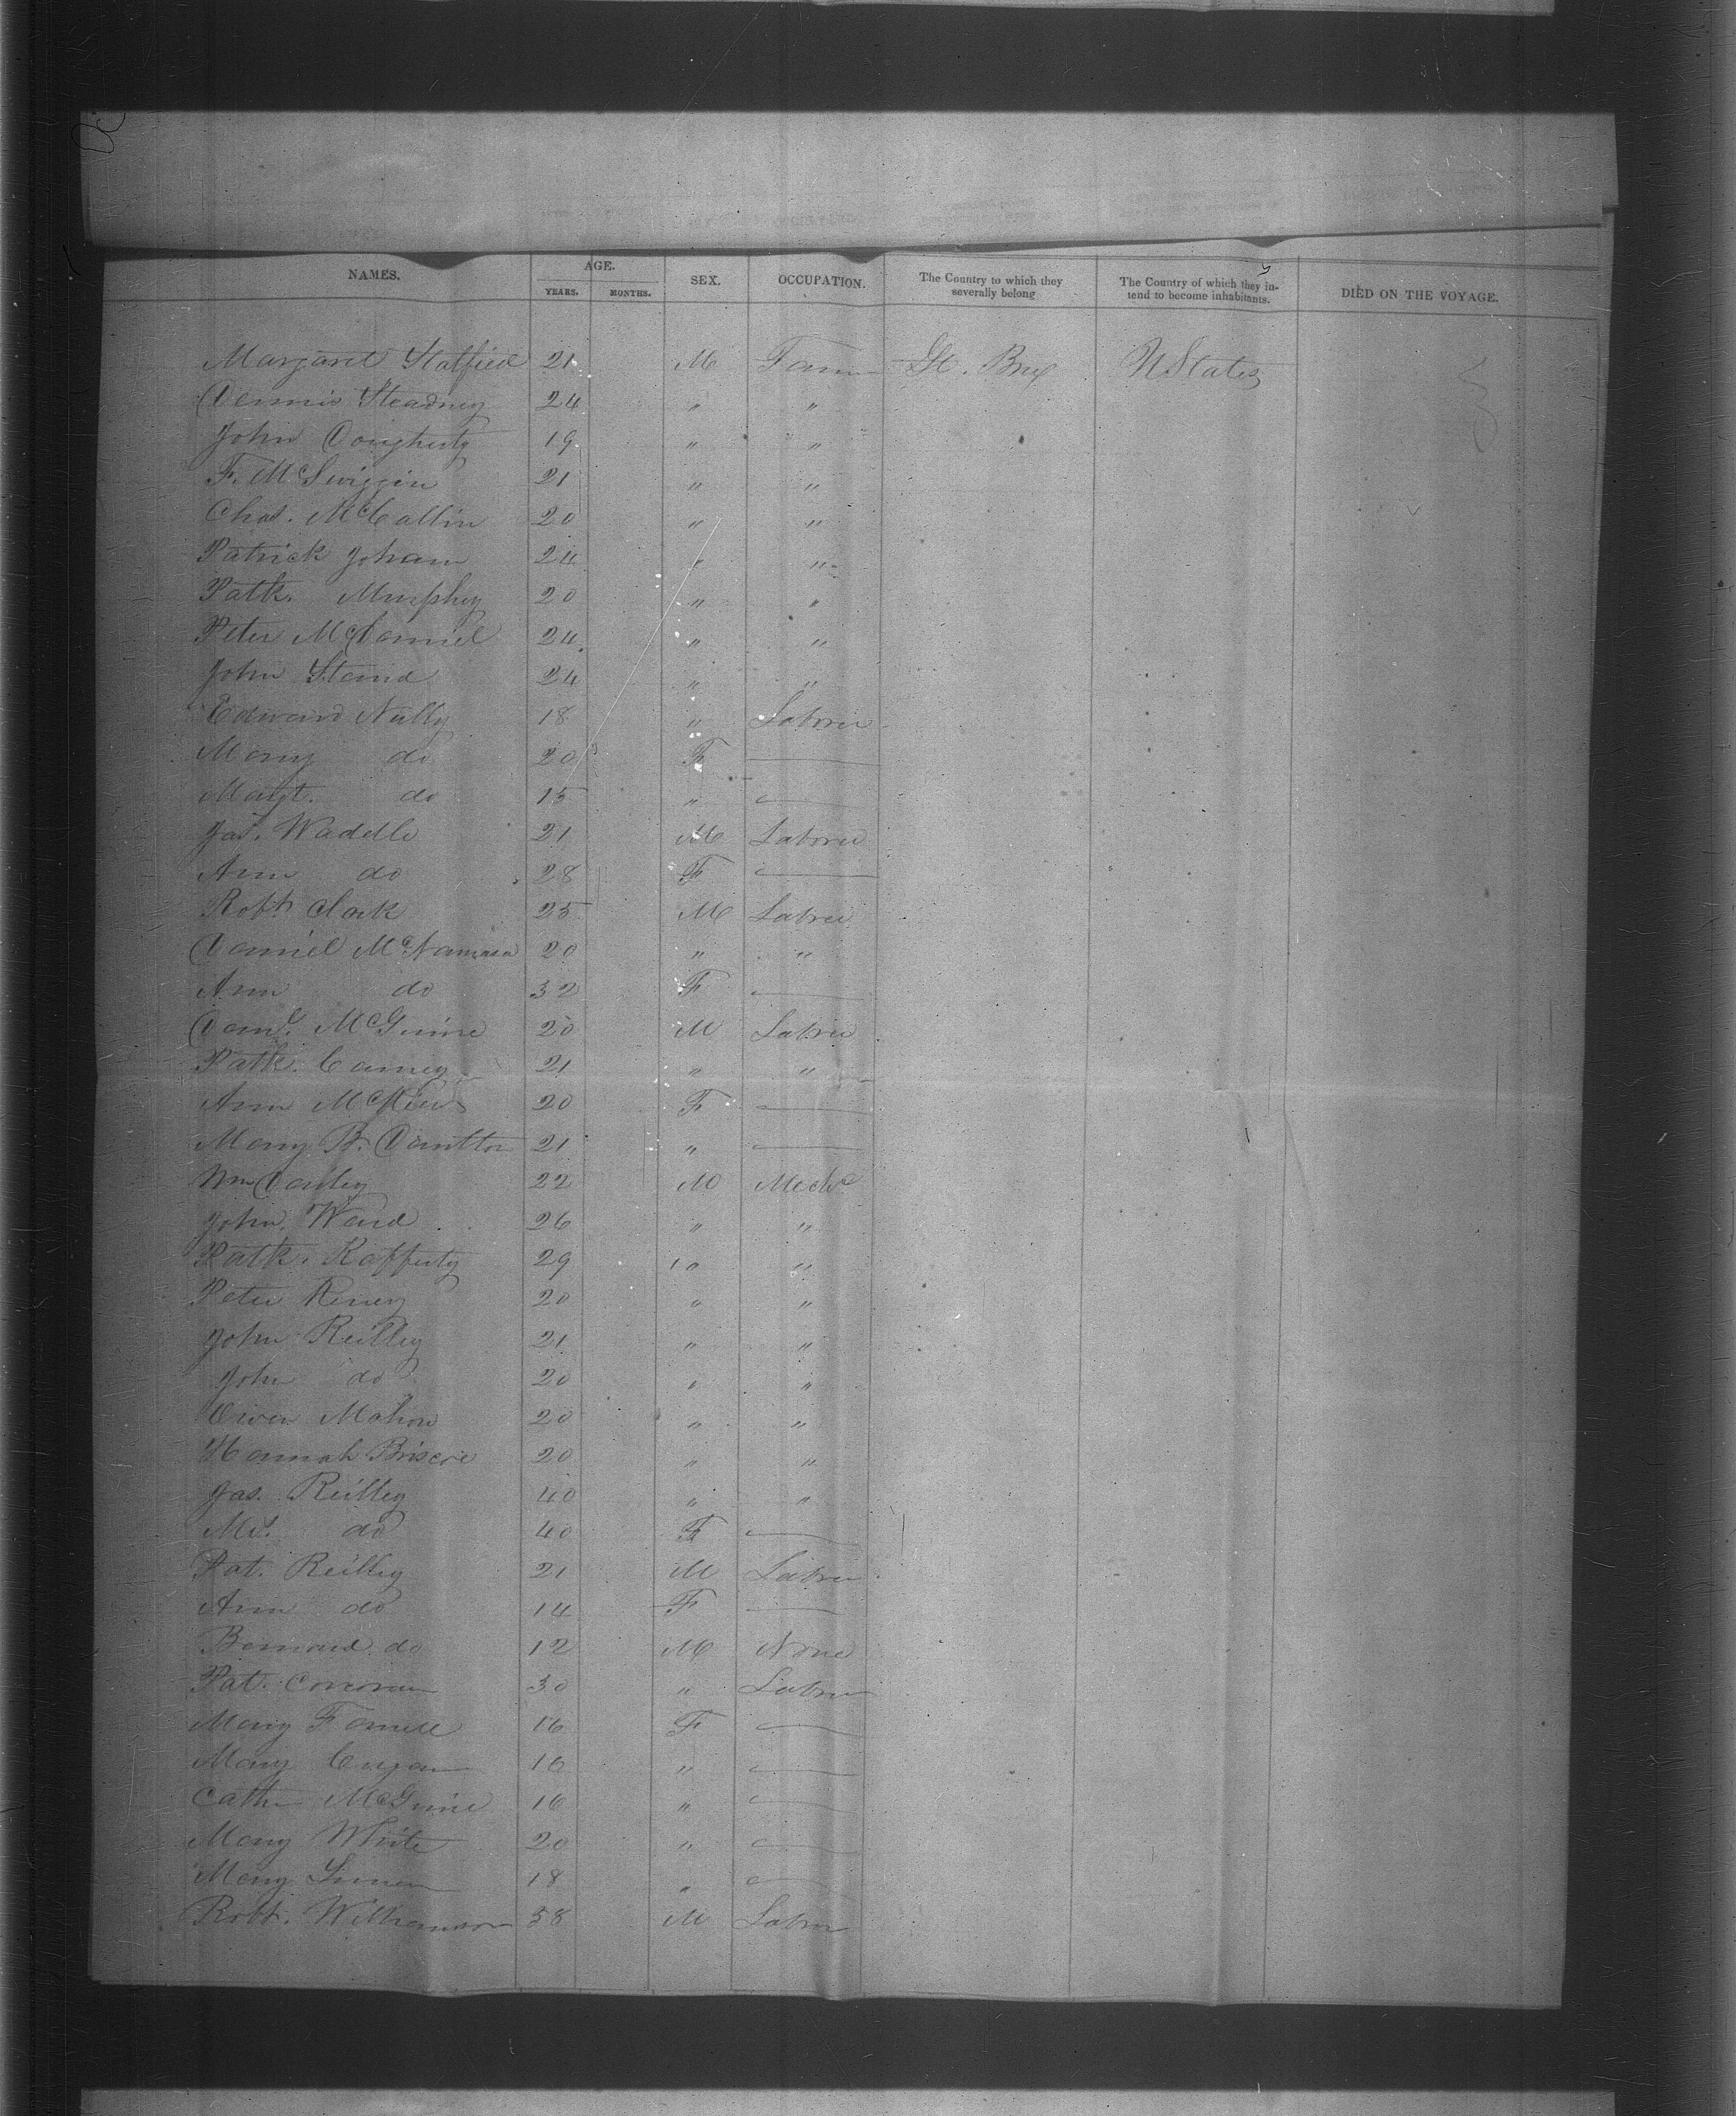 NAMES. AGE. SEX. OCCUPATION. The Country to which they severally belong The Country of which they intend to become inhabitants. DIED ON THE VOYAGE.
YEARS. MONTHS.
Margaret 21 M Farm Gt. Brit UStates
Dennis 24 " "
John Dougherty 19 " "
F. McSwiggin 21 " "
Chas. McCallin 20 " "
Patrick 24 " "
Patk. Murphey 20 " "
Peter McDaniel 24 " "
John 24 " "
Edward Nulty 18 " Laborer
Mary do 20 F —
Margt. do 15 " —
Jas. Waddle 21 M Laborer
Ann do 28 F —
Robt. Clark 25 M Labrer
Daniel McNamara 20 " "
Ann do 32 F —
Danl. McGuire 20 M Labrer
Patk. Carney 21 " "
Ann 20 F —
Mary B. 21 " —
Wm 22 M Mechc
John Ward 26 " "
Patk. Rafferty 29 " "
Peter 20 " "
John Reilley 21 " "
John do 20 " "
Owen Mahon 20 " "
Hannah Briscoe 20 " "
Jas. Reilley 40 " "
Mrs. do 40 F —
Pat. Reilley 21 M Labrer
Ann do 14 F —
Bernard do 12 M None
Pat. Corcoran 30 " Labrer
Mary Farrell 16 F —
Mary 16 " —
Cath McGuire 16 " —
Mary White 20 " —
Mary 18 " —
Robt. Williamson 58 M Labrer